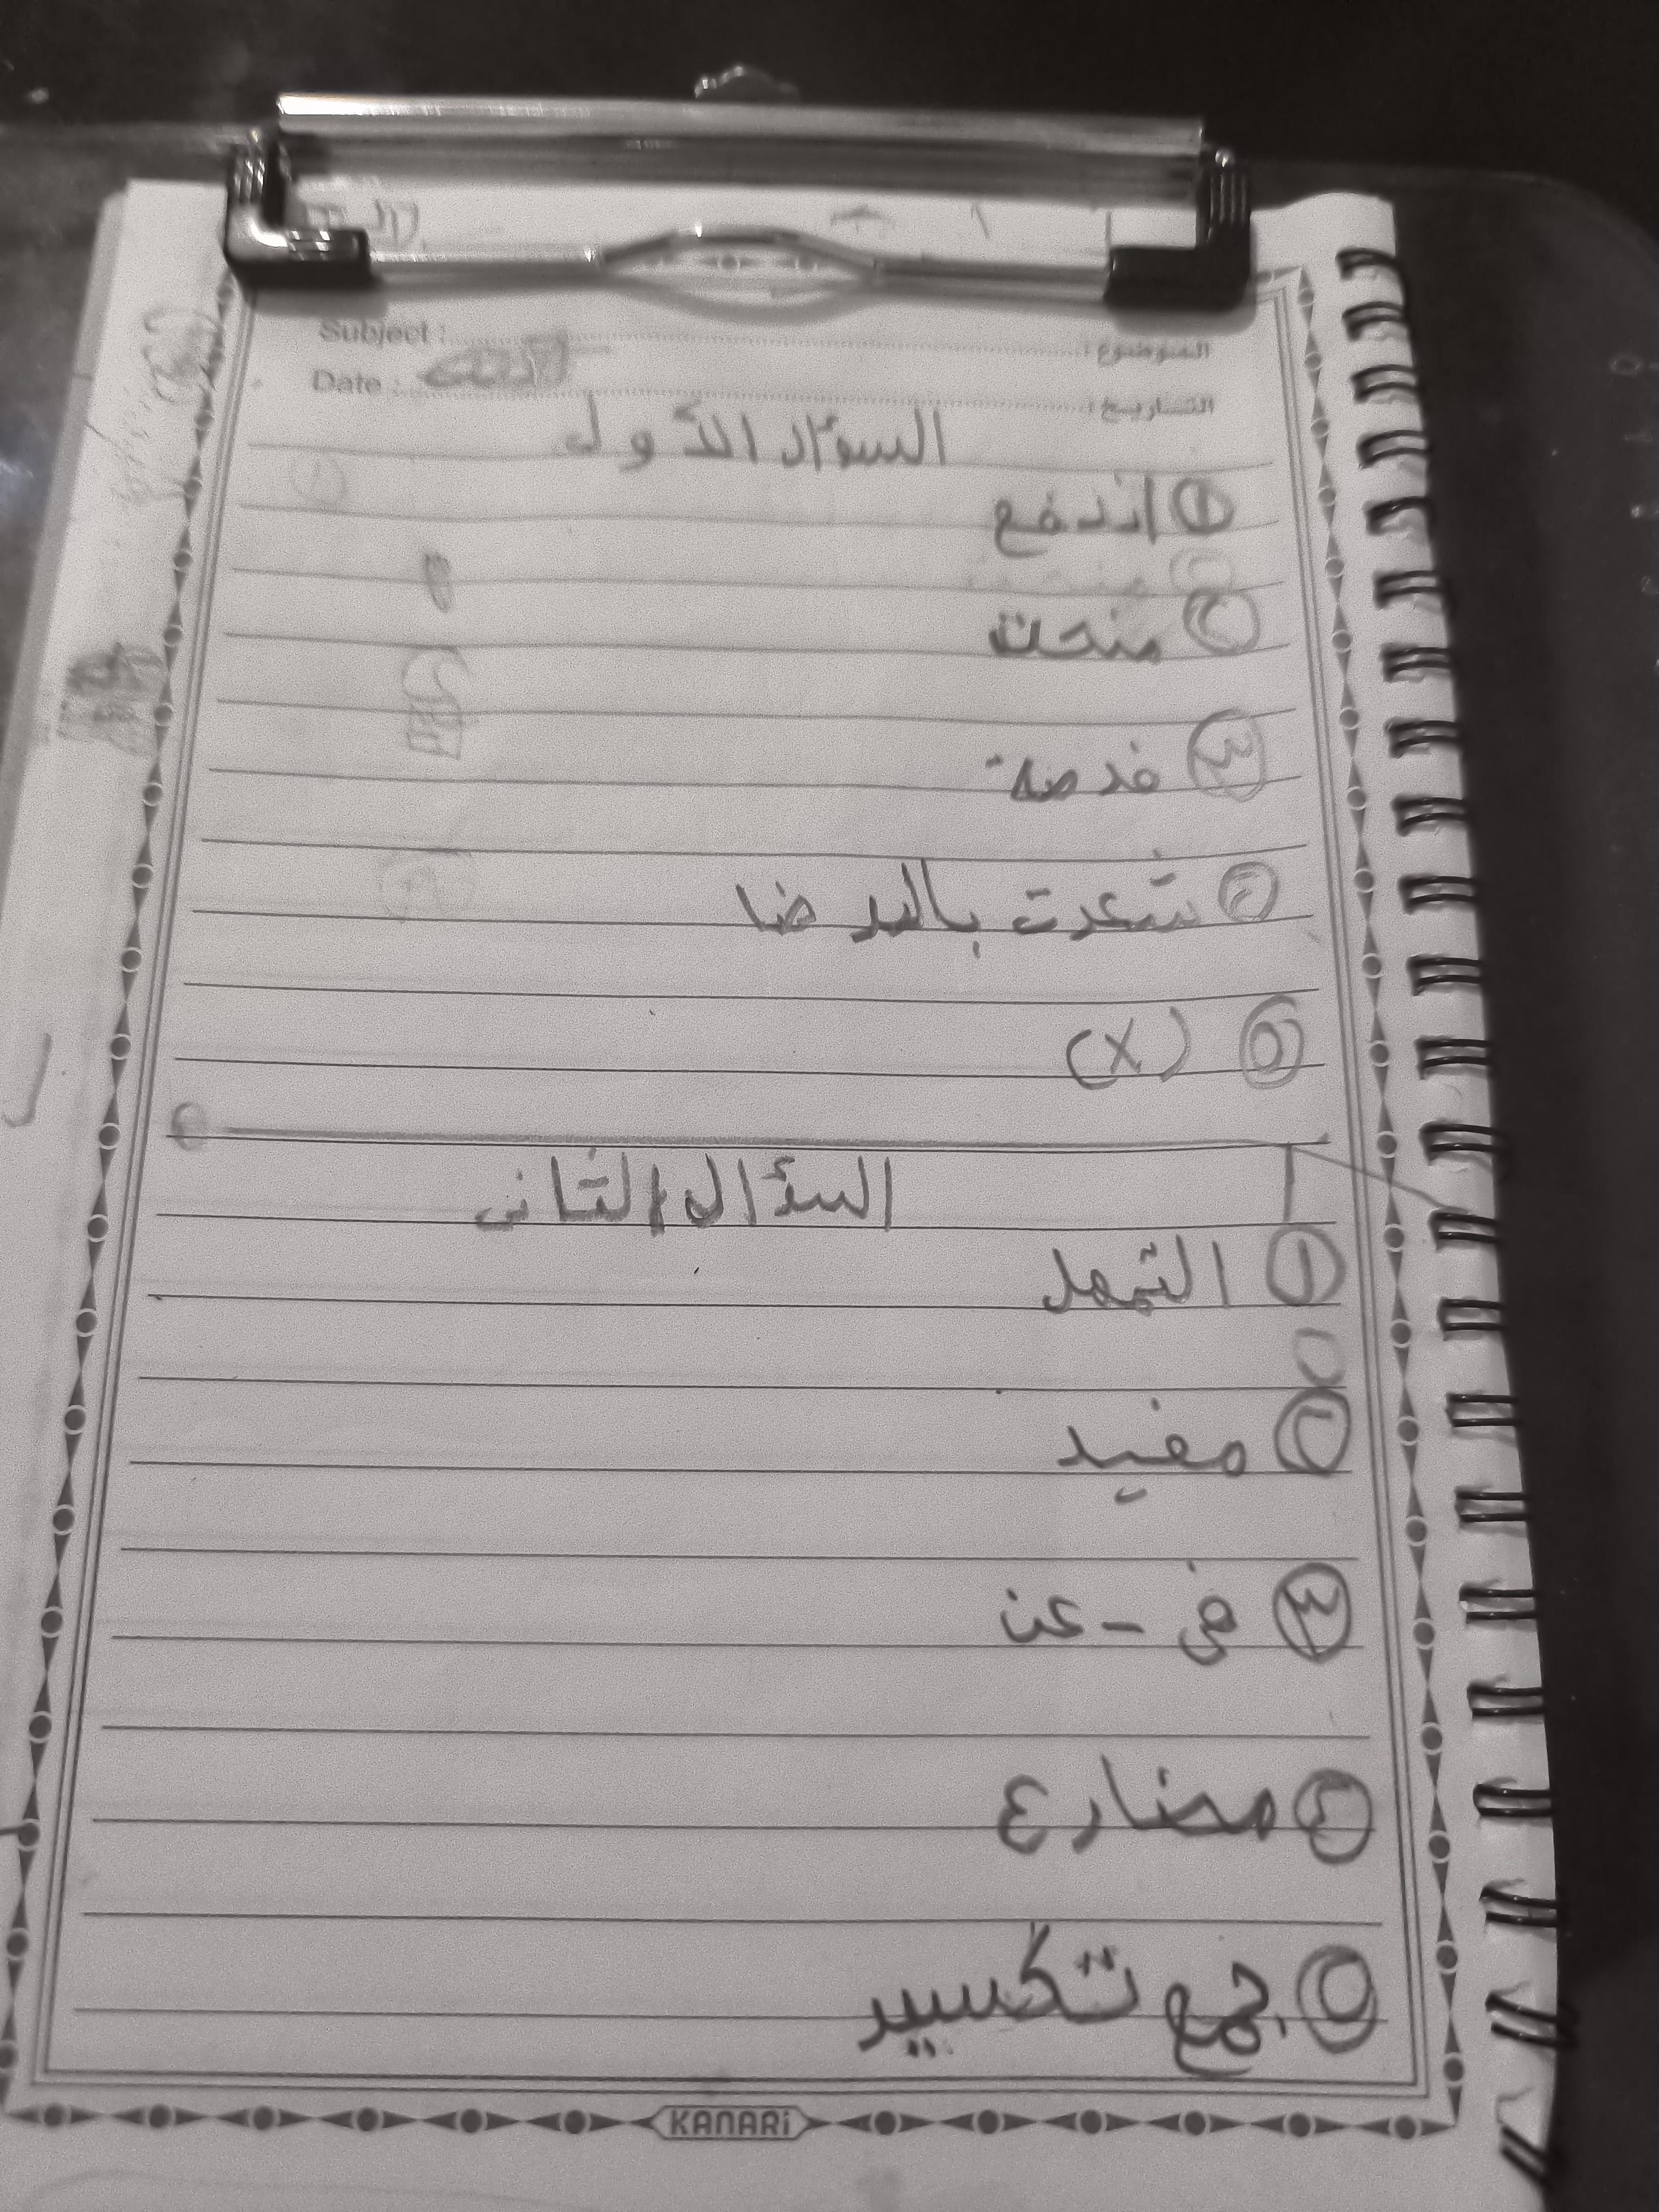 Subject :
الموضوع :
Date :
التاريخ :
السؤال الأول
١ اندفع
٢ منحت
٣ فرصة
٤ شعرت بالرضا
٥ (x)
السؤال الثاني
١ التمهل
٢ مفيد
٣ في - عن
٤ مضارع
٥ جمع تكسير
KANARi